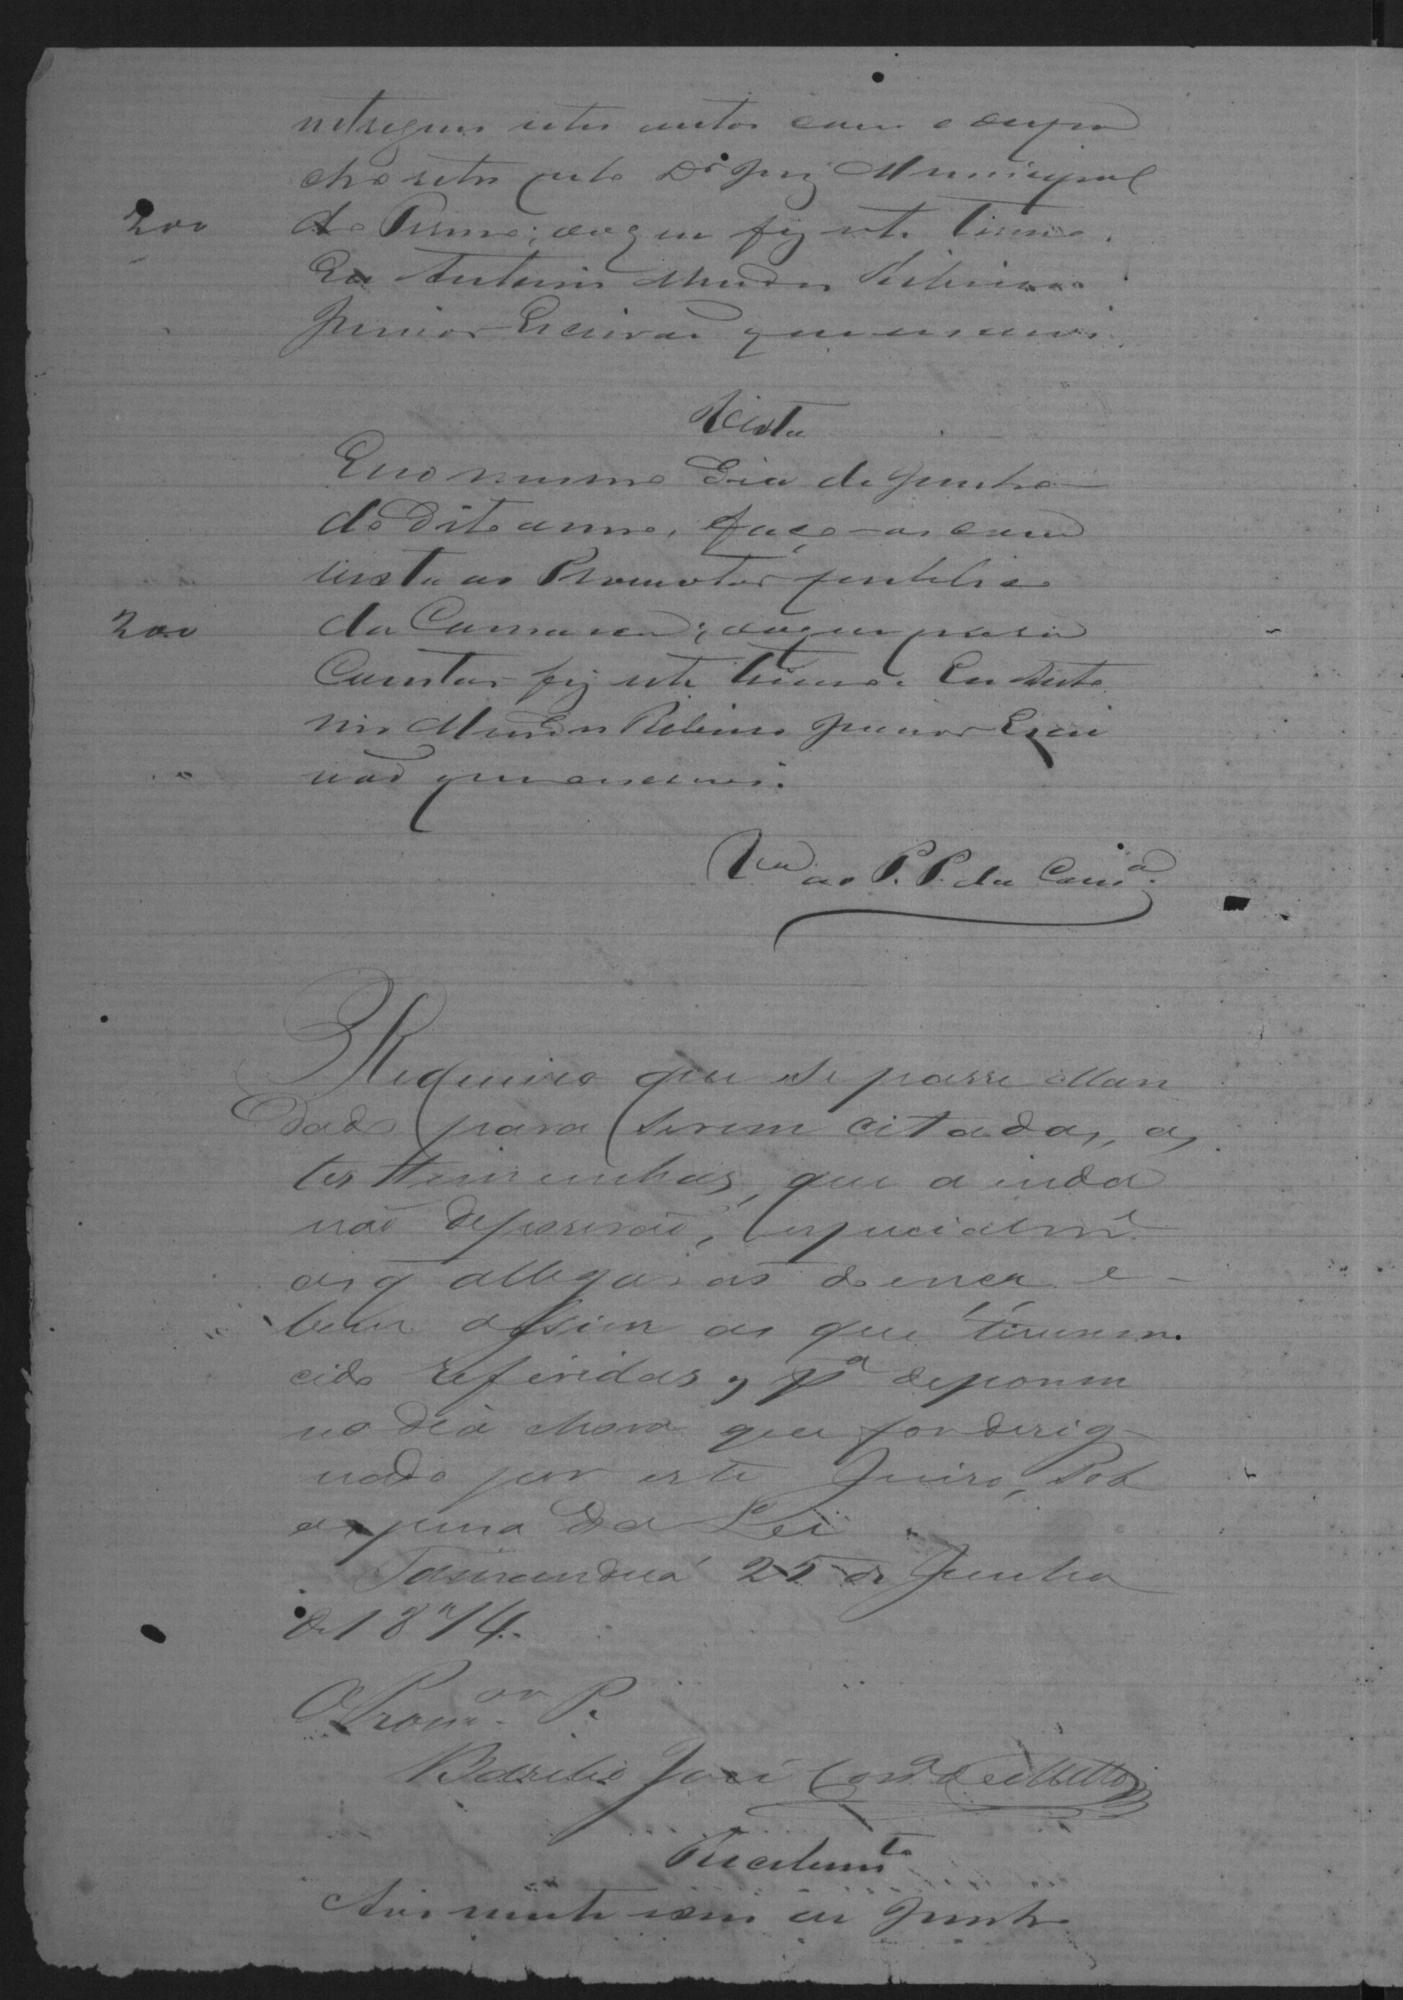 entregues estes autos com o despa
cho retro pelo Dr Juiz Municipal
200 do Termo; do que fiz este Termo.
Eu Antonio Mendes Ribeiro
Junior Escrivão que escrevi.
Vista
E no mesmo Dia de Junho
do dito anno, faço-os com
vista ao Promotor publico
200 da Comarca; do que para
Constar fiz este termo. Eu Anto
nio Mendes Ribeiro Junior Escri
vão que escrevi.
Vta ao P. P. da Comca.
Requeiro que se passe Man
dado para serem citadas, as
testteimunhas, que ainda
não deposerão, especialmte
as q allegarão doença e
bem assim as que tiverem
cido referidas, pa deporem
no dia e hora que for desig-
nado por este Juiso, Sob
as pena da Lei
Tamanduá 25 de Junho
de 1874.
O Promor P.
Basilio José
Recebimto
Aos vinte seis de Junho